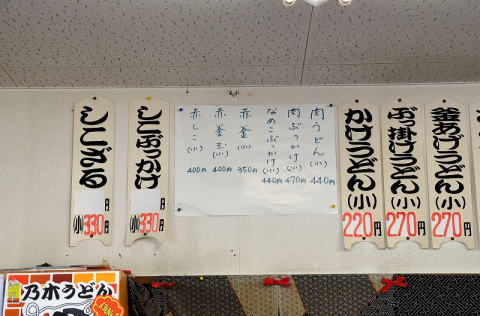 釜あげうどん(小) 270
ぶっ掛けうどん(小) 270
かけうどん(小) 220
肉うどん(小) 440円
肉ぶっかけ(小) 470円
なめこぶっかけ(小) 440円
赤釜(小) 350円
赤釜玉(小) 400円
赤しこ(小) 400円
しこぶっかけ 円 (小)330
しこざる 円 (小)330
乃木うどん